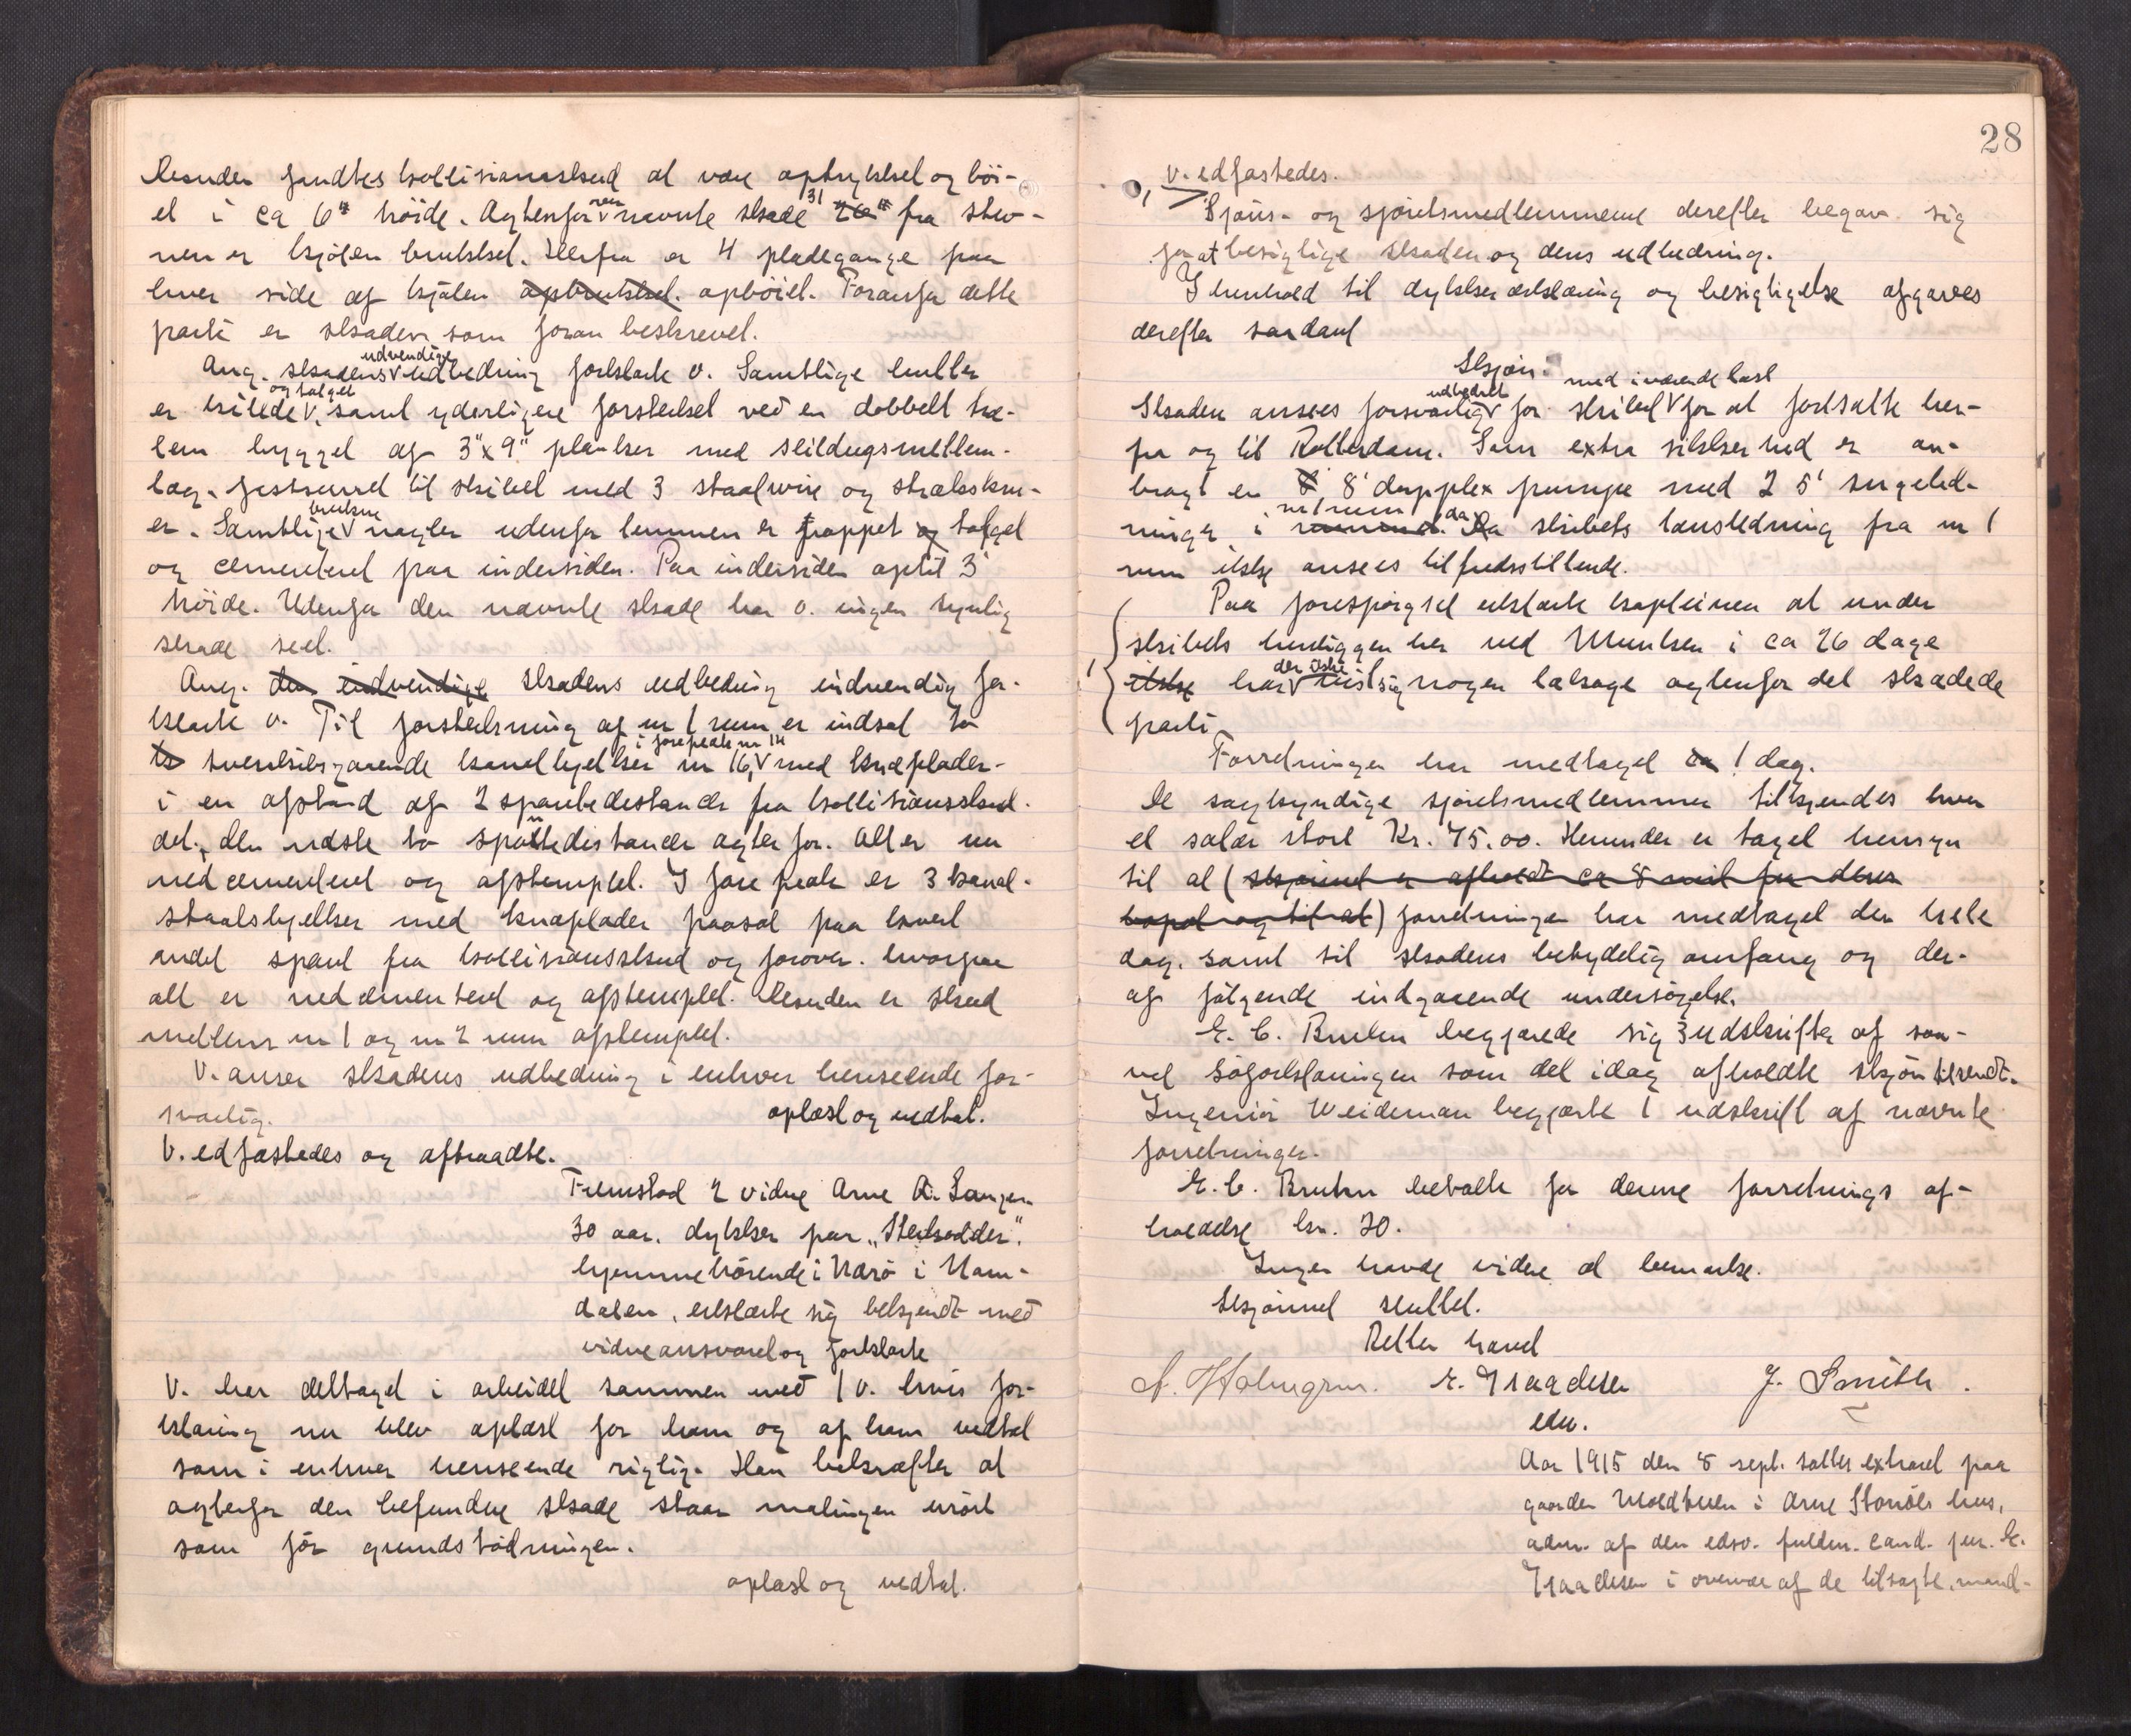 Desuden fandtes kollisionsskud at være optrykket og böi-
et i ca 6" höide. Agtenfor nævnte skade 31 26" fra stev-
nen er kjölen brukket. Herfra er 4 pladegange paa
hver side af kjölen opbrukket. opböiet. Foranfor dette
parti er skaden som foran beskrevet.
Ang. skadens udvendige udbedring forklarte v. Samtlige huller
er kilede og talget, samt yderligere forsterket ved en dobbelt træ-
lem bygget af 3"x9" planker med seildugsmellem-
læg. fastsurret til skibet med 3 staalwire og strækskru-
er. Samtlige brukne nagler udenfor lemmen er proppet og talget
og cementeret paa indersiden. Paa indersiden optil 3'
höide. Udenfor den nævnte skade har v. ingen synlig
skade seet.
Ang. den indvendige skadens udbedring indvendig for-
klarte v. Til forsterkning af nr 1 rum er indsat to
to tverskibsgaaende kanalbjelker nr 16, i forepeak nr 14 med knæplader.
i en afstand af 2 spantedistancer fra kollisionsskud-
det, den næste to spantedistancer agterfor. Alt er nu
nedcementeret og afstemplet. I forepeak er 3 kanal-
staalsbjelker med knæplader paasat paa hvert
andet spant fra kollisionsskud og forover. hvorpaa
alt er nedcementeret og afstemplet. Desuden er skud
mellem nr 1 og nr 2 rum afstemplet.
V. anser skadens udbedring i enhver henseende for-
svarlig. oplæst og vedtat.
V. edfæstedes og aftraadte.
Fremstod 2 vidne Arne A.
30 aar. dykker paa
hjemmehörende i Nærö i Nam-
dalen, erklærte sig bekjendt med
vidneansvaret og forklarte
V. har deltaget i arbeidet sammen med 1 v. hvis for-
klaring nu blev oplæst for ham og af ham vedtat
som i enhver henseende rigtig. Han bekræfter at
agtenfor den befundne skade staar malingen urört
som för grundstödningen.
oplæst og vedtat.
28
V. edfæstedes.
Skjöns- og sjöretsmedlemmerne derefter begav sig
for at besigtige skaden og dens udbedring.
I henhold til dykkererklæring og besigtigelse afgaves
derefter saadant
Skjön:
Skaden ansees forsvarlig udbedret for skibet med iværende last for at fortsætte her-
fra og til Rotterdam. Som extra sikkerhed er an-
bragt en 8' dupplex pumpe med 2 5' sugeled-
ninger i nr 1 rum da skibets lænsledning fra nr 1
rum ikke ansees tilfredsstillende.
Paa forespörgsel erklærte kapteinen at under
skibets henliggen her ved Munken i ca 26 dage
ikke har der ikke vist sig nogen lækage agtenfor det skadede
parti
Forretningen har medtaget ca 1 dag.
De sagkyndige sjöretsmedlemmer tilkjendes hver
et salær stort Kr. 75.00. Herunder er taget hensyn
til at (skjönnet er afholdt ca 8 mil fra deres
bopæl og til at) forretningen har medtaget den hele
dag. samt til skadens betydelig omfang og der-
af fölgende indgaaende undersögelse.
E. C. Bruhn begjærede sig 3 udskrifter af saa-
vel söforklaringen som det idag afholdte skjön tilsendt.
Ingeniör Weideman begjærte 1 udskrift af nævnte
forretninger.
E. C. Bruhn betalte for denne forretnings af-
holdelse kr. 20.
Ingen havde videre at bemærke.
Skjönnet sluttet.
Retten hævet
A. Holmgren. E. Isachsen J. Smith.
edv.
Aar 1915 den 8 sept. sattes extraret paa
gaarden i Arne hus,
adm. af den edsv. fuldm. cand. jur. E.
Isachsen i overvær af de tilsagte mænd-